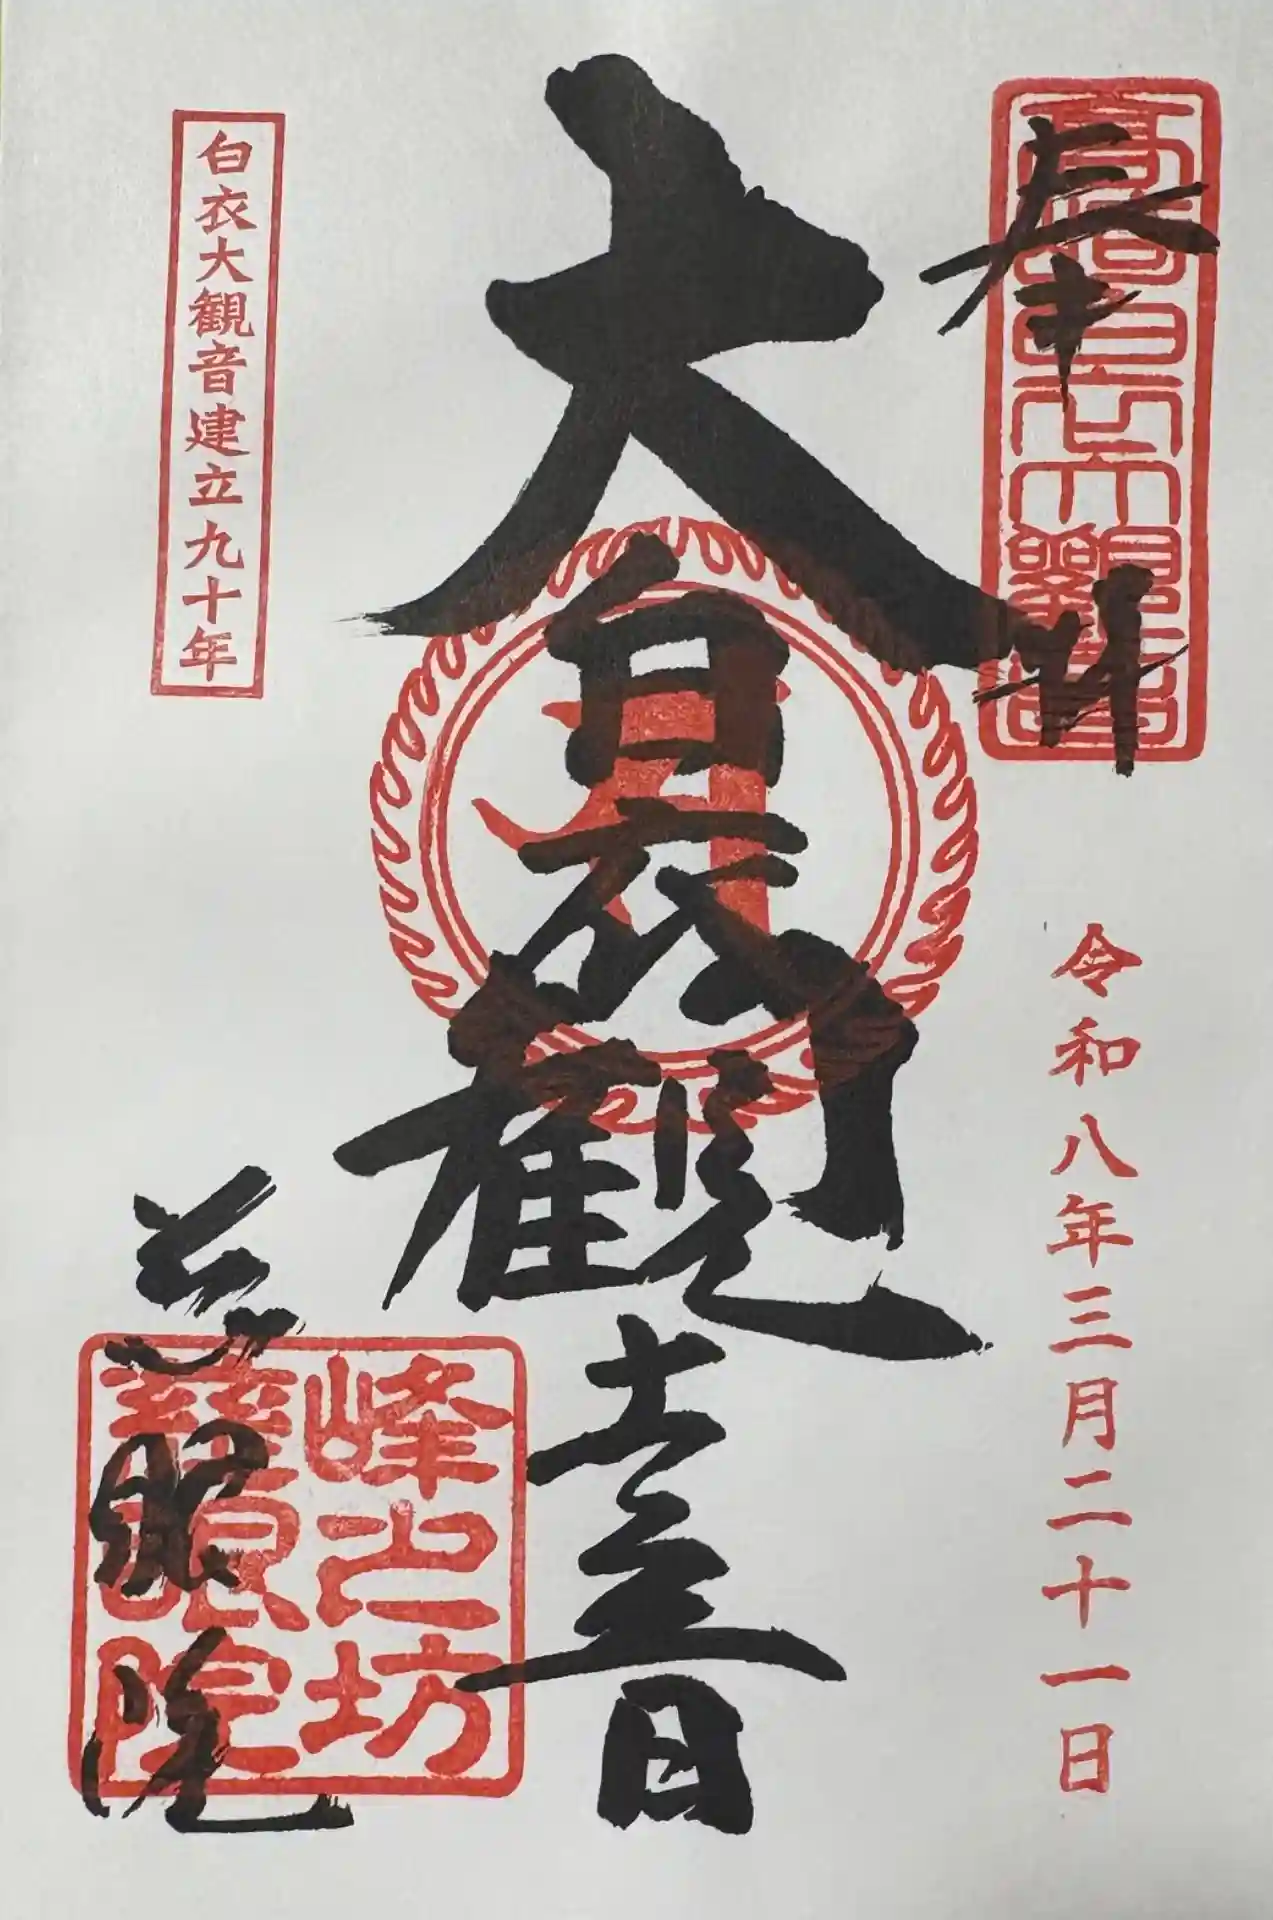 奉拝
高崎白衣大觀音
令和八年三月二十一日
大白衣観音
慈眼院
峰之坊
慈眼院
白衣大観音建立九十年